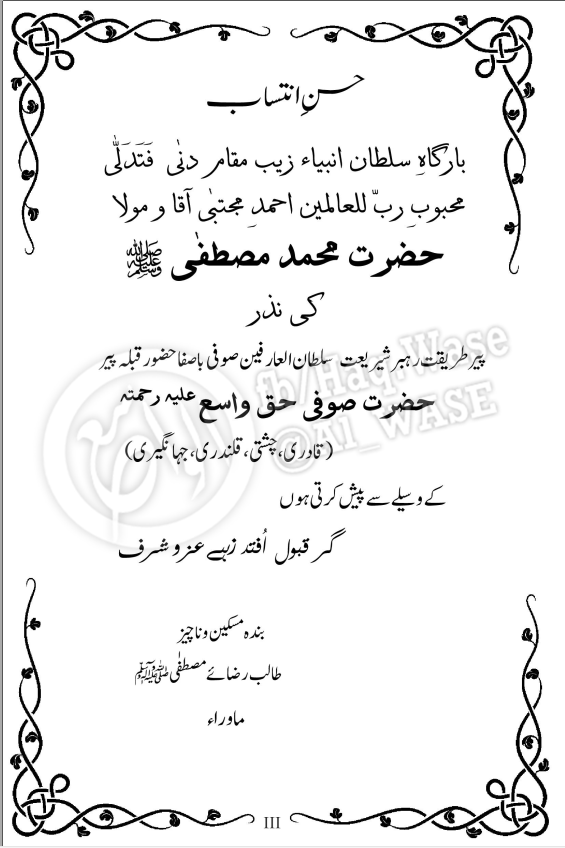 حسنِ انتساب
بارگاہِ سلطان انبیاء زیب مقام دنٰی فَتَدَلّٰی
محبوبِ ربّ للعالمین احمدِ مجتبٰی آقا و مولا
حضرت محمد مصطفٰی ﷺ
کی نذر
پیر طریقت رہبر شریعت سلطان العارفین صوفی باصفا حضور قبلہ پیر
حضرت صوفی حق واسع علیہ رحمتہ
(قادری، چشتی، قلندری، جہانگیری)
کے وسیلے سے پیش کرتی ہوں
گر قبول اُفتد زہے عز و شرف
بندہ مسکین و ناچیز
طالب رضائے مصطفٰی ﷺ
ماوراء
III
fb/Haq.Wase
@Al_WASE